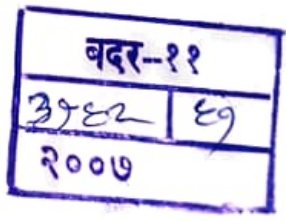 बदर-११
३९६२ ६१
२००७